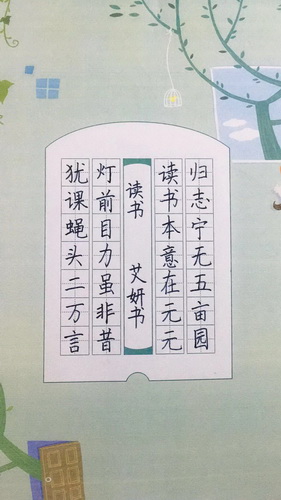 归志宁无五亩园
读书本意在元元
读书 艾妍书
灯前目力虽非昔
犹课蝇头二万言